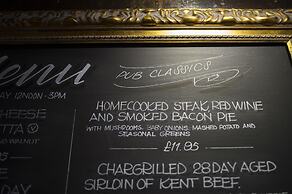 Menu
PUB CLASSICS
AY 12NOON - 3PM
HOMECOOKED STEAK, RED WINE
AND SMOKED BACON PIE
WITH MUSHROOMS, BABY ONIONS, MASHED POTATO AND
SEASONAL GREENS
£11.95
CHEESE
TTA
WALNUT
CHARGRILLED 28 DAY AGED
SIRLOIN OF KENT BEEF